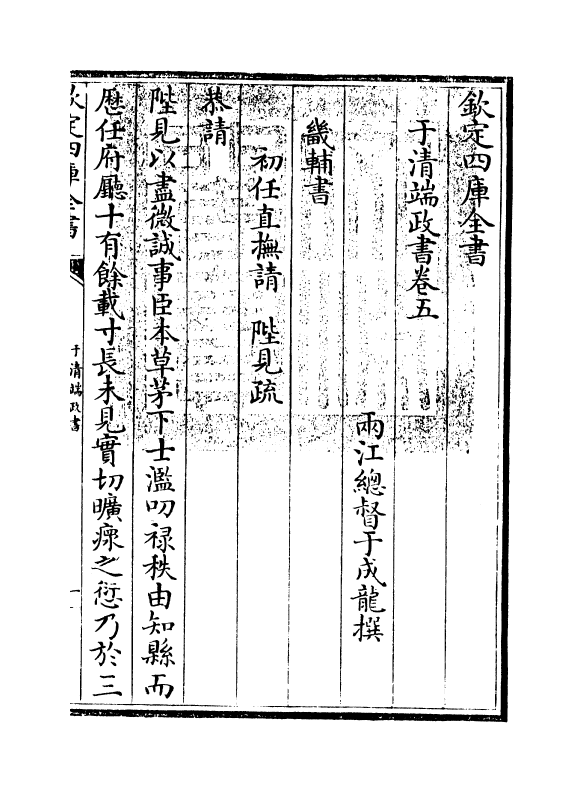 欽定四庫全書
于清端政書卷五
兩江總督于成龍撰
畿輔書
初任直撫請 陛見疏
恭請
陛見以盡微誠事臣本草茅下士濫叨祿秩由知縣而
歷任府廳十有餘載寸長未見實切曠瘝之愆乃於三
欽定四庫全書
于清端政書
一